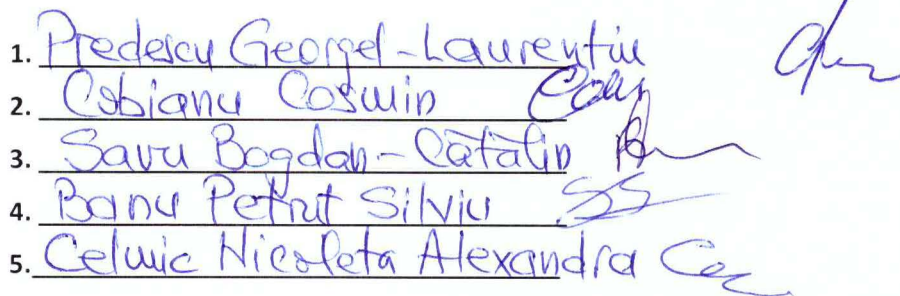 1. Predescu Georgel-Laurențiu
2. Cobianu Cosmin
3. Savu Bogdan-Cătălin
4. Banu Petruț Silviu
5. Celmic Nicoleta Alexandra